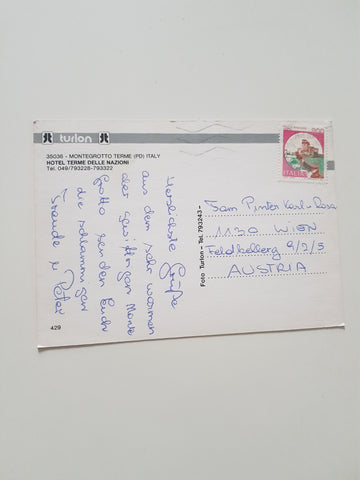 turlon
35036 - MONTEGROTTO TERME (PD) ITALY
HOTEL TERME DELLE NAZIONI
Tel. 049/793228-793322
Herzlichste Grüße
aus dem sehr warmen
aber gewittrigen Monte
Grotto senden Euch
die schlammigen
Freunde u Peter
Foto Turlon - Tel. 793243 -
Fam Pinter Karl u Rosa
1130 WIEN
Feldkellerg 9/2/5
AUSTRIA
ITALIA
429